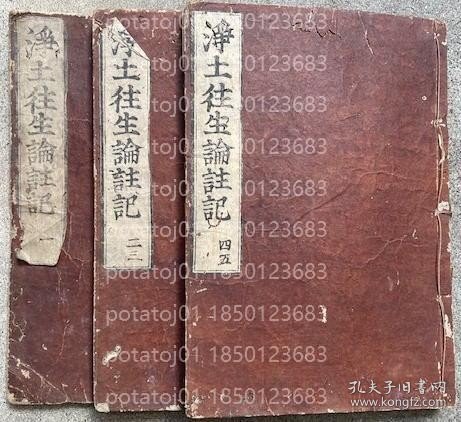 淨土往生論註記 一
淨土往生論註記 二三
淨土往生論註記 四五
potatoj01 1850123683
potatoj01 1850123683
potatoj01 1850123683
potatoj01 1850123683
potatoj01 1850123683
potatoj01 1850123683
potatoj01 1850123683
孔夫子旧书网
www.kongfz.com